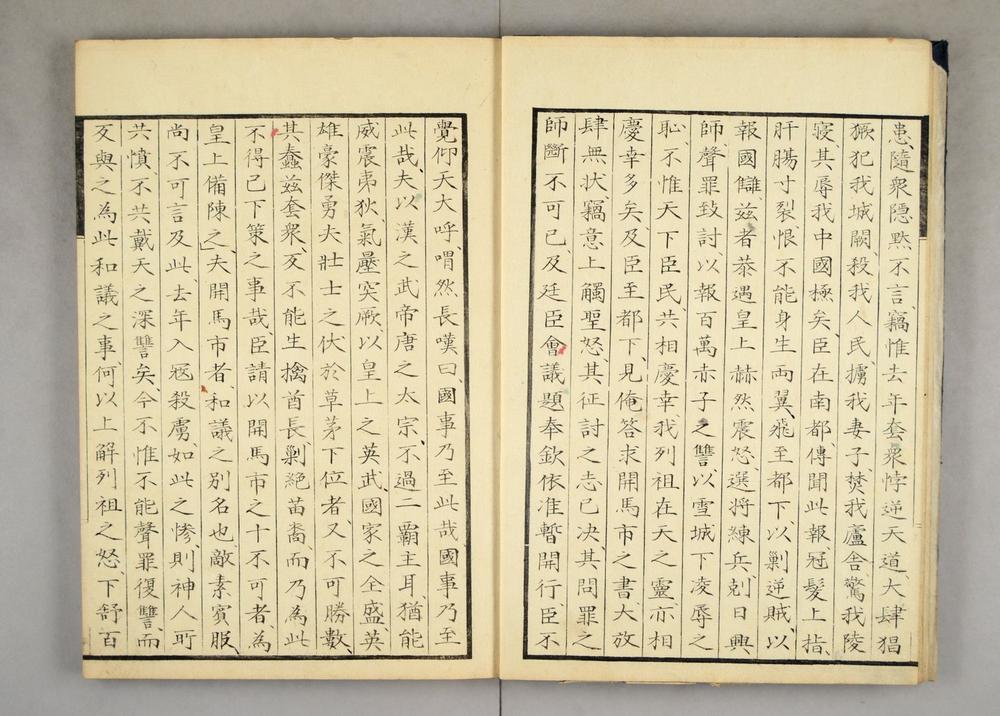 患、隨衆隱默不言、竊惟去年套衆悖逆天道、大肆猖
獗、犯我城闕、殺我人民、擄我妻子、焚我廬舍、驚我陵
寝、其辱我中國極矣、臣在南都、傳聞此報、冠髮上指、
肝腸寸裂、恨不能身生両翼、飛至都下、以剿逆賊、以
報國讎、茲者恭遇皇上赫然震怒、選將練兵、剋日興
師、聲罪致討、以報百萬赤子之讐、以雪城下凌辱之
恥、不惟天下臣民共相慶幸、我列祖在天之靈、亦相
慶幸多矣、及臣至都下、見俺答求開馬市之書、大放
肆無狀、竊意上觸聖怒、其征討之志已決、其問罪之
師斷不可已、及廷臣會議題奉欽依准暫開行、臣不
覺仰天大呼、喟然長嘆曰、國事乃至此哉、國事乃至
此哉、夫以漢之武帝、唐之太宗、不過二霸主耳、猶能
威震夷狄、氣壓突厥、以皇上之英武、國家之全盛、英
雄豪傑勇夫壯士之伏於草茅下位者、又不可勝數、
其蠢茲套衆、㞮不能生擒酋長、剿絕苗裔、而乃為此
不得已下策之事哉、臣請以開馬市之十不可者、為
皇上備陳之、夫開馬市者、和議之別名也、敵素賓服、
尚不可言及此、去年入寇殺虜、如此之慘、則神人所
共憤、不共戴天之深讐矣、今不惟不能聲罪復讐、而
㞮與之為此和議之事、何以上解列祖之怒、下舒百